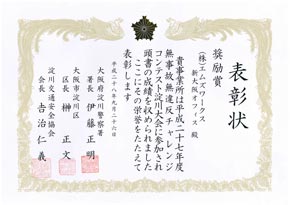 表彰状
奨励賞
(株)エムズワークス
新大阪オフィス 殿
貴事業所は平成二十七年度
無事故無違反チャレンジ
コンテスト淀川大会に参加され
頭書の成績を収められました
ここにその栄誉をたたえて
表彰します
平成二十八年九月二十六日
大阪府淀川警察署
署長 伊藤正明
大阪市淀川区
区長 榊正文
淀川交通安全協会
会長 吉治仁義